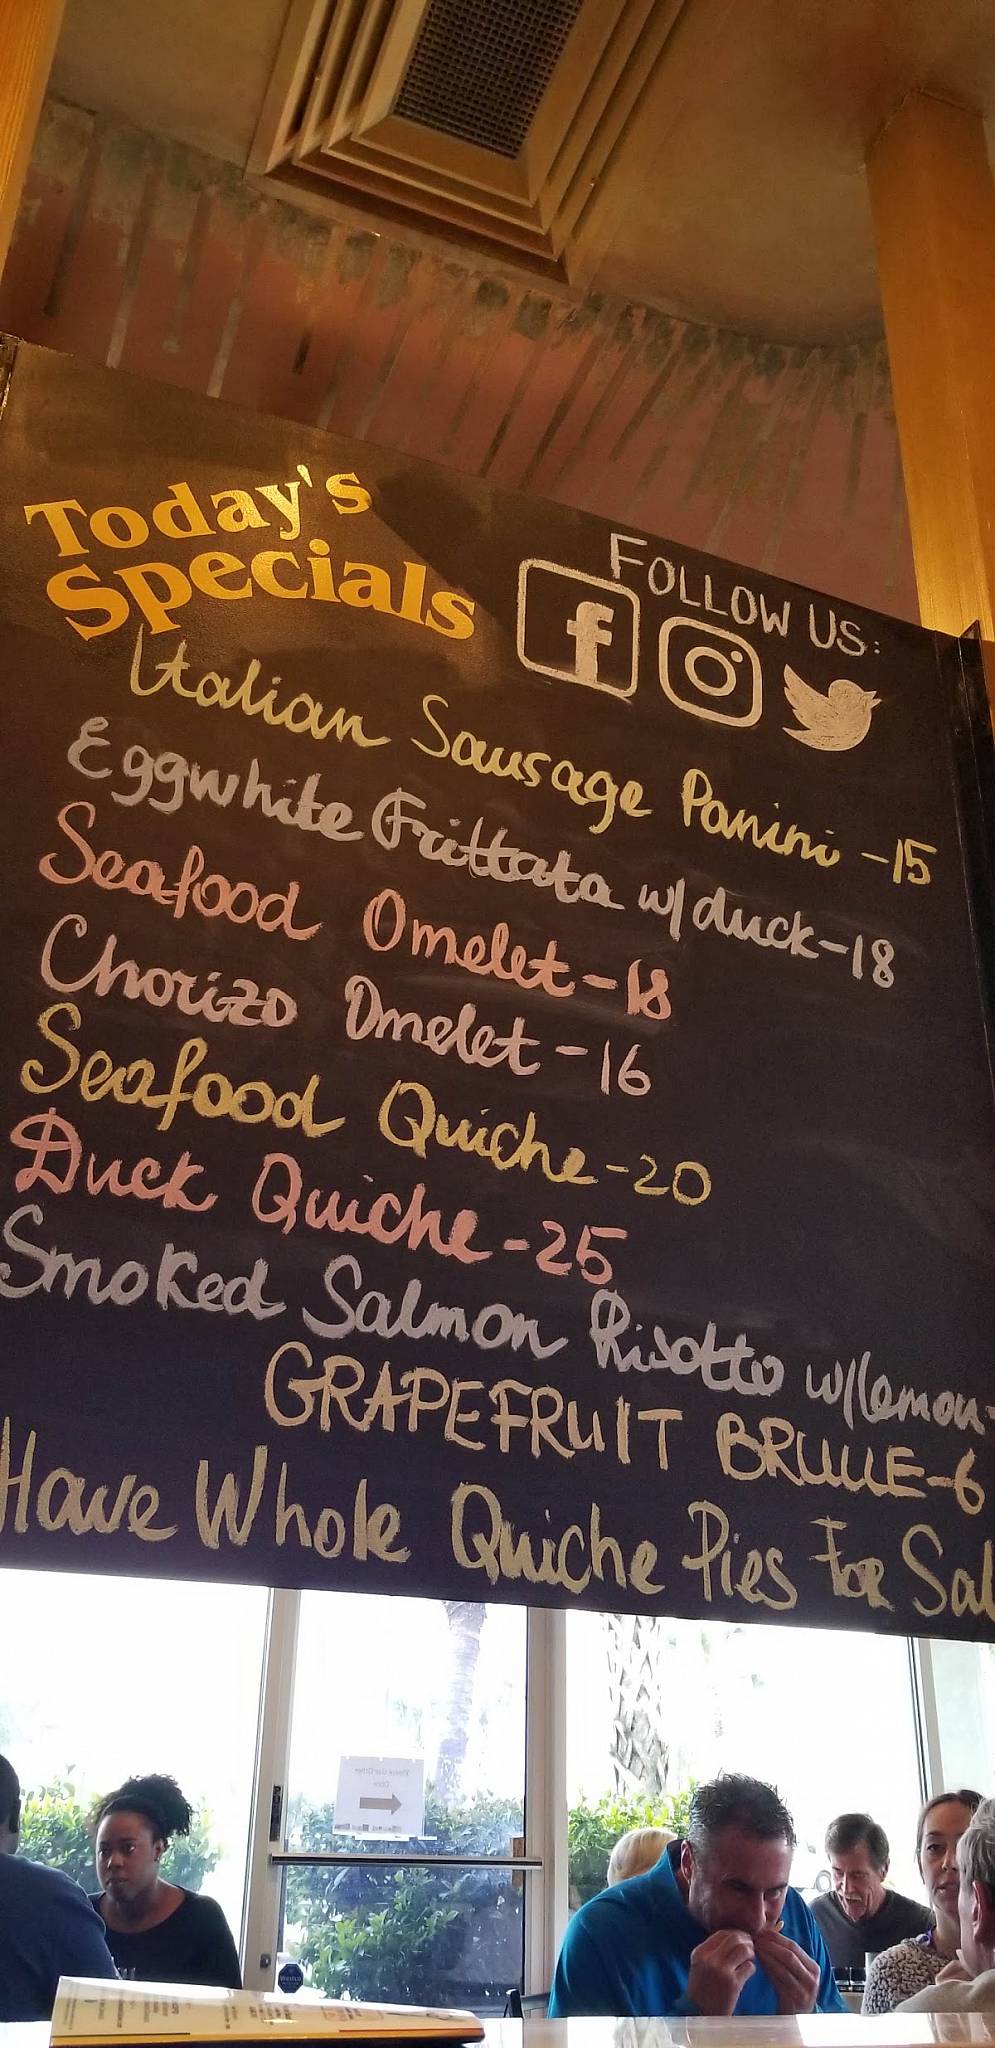 Today's
Specials
FOLLOW US:
Italian Sausage Panini -15
Eggwhite Frittata w/duck-18
Seafood Omelet-18
Chorizo Omelet-16
Seafood Quiche-20
Duck Quiche-25
Smoked Salmon Risotto w/lemon-
GRAPEFRUIT BRULLE-6
Have Whole Quiche Pies For Sal
Please Use Other
Door